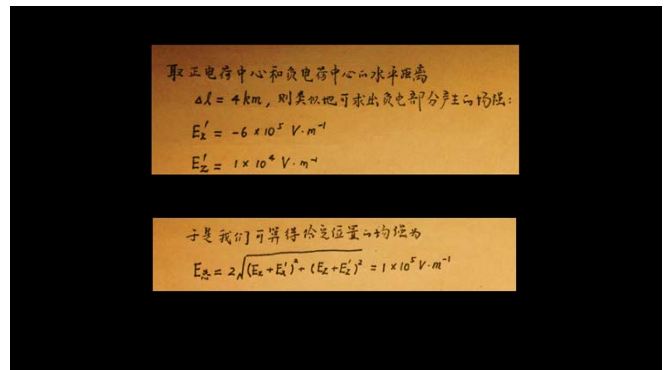 取正电荷中心和负电荷中心的水平距离
Δl = 4km, 则类似地可求出负电部分产生的场强:
Ex' = -6 × 10⁵ V·m⁻¹
Ez' = 1 × 10⁴ V·m⁻¹
于是我们可算得给定位置的场强为
E总 = 2√(Ex + Ex')² + (Ez + Ez')² = 1 × 10⁵ V·m⁻¹